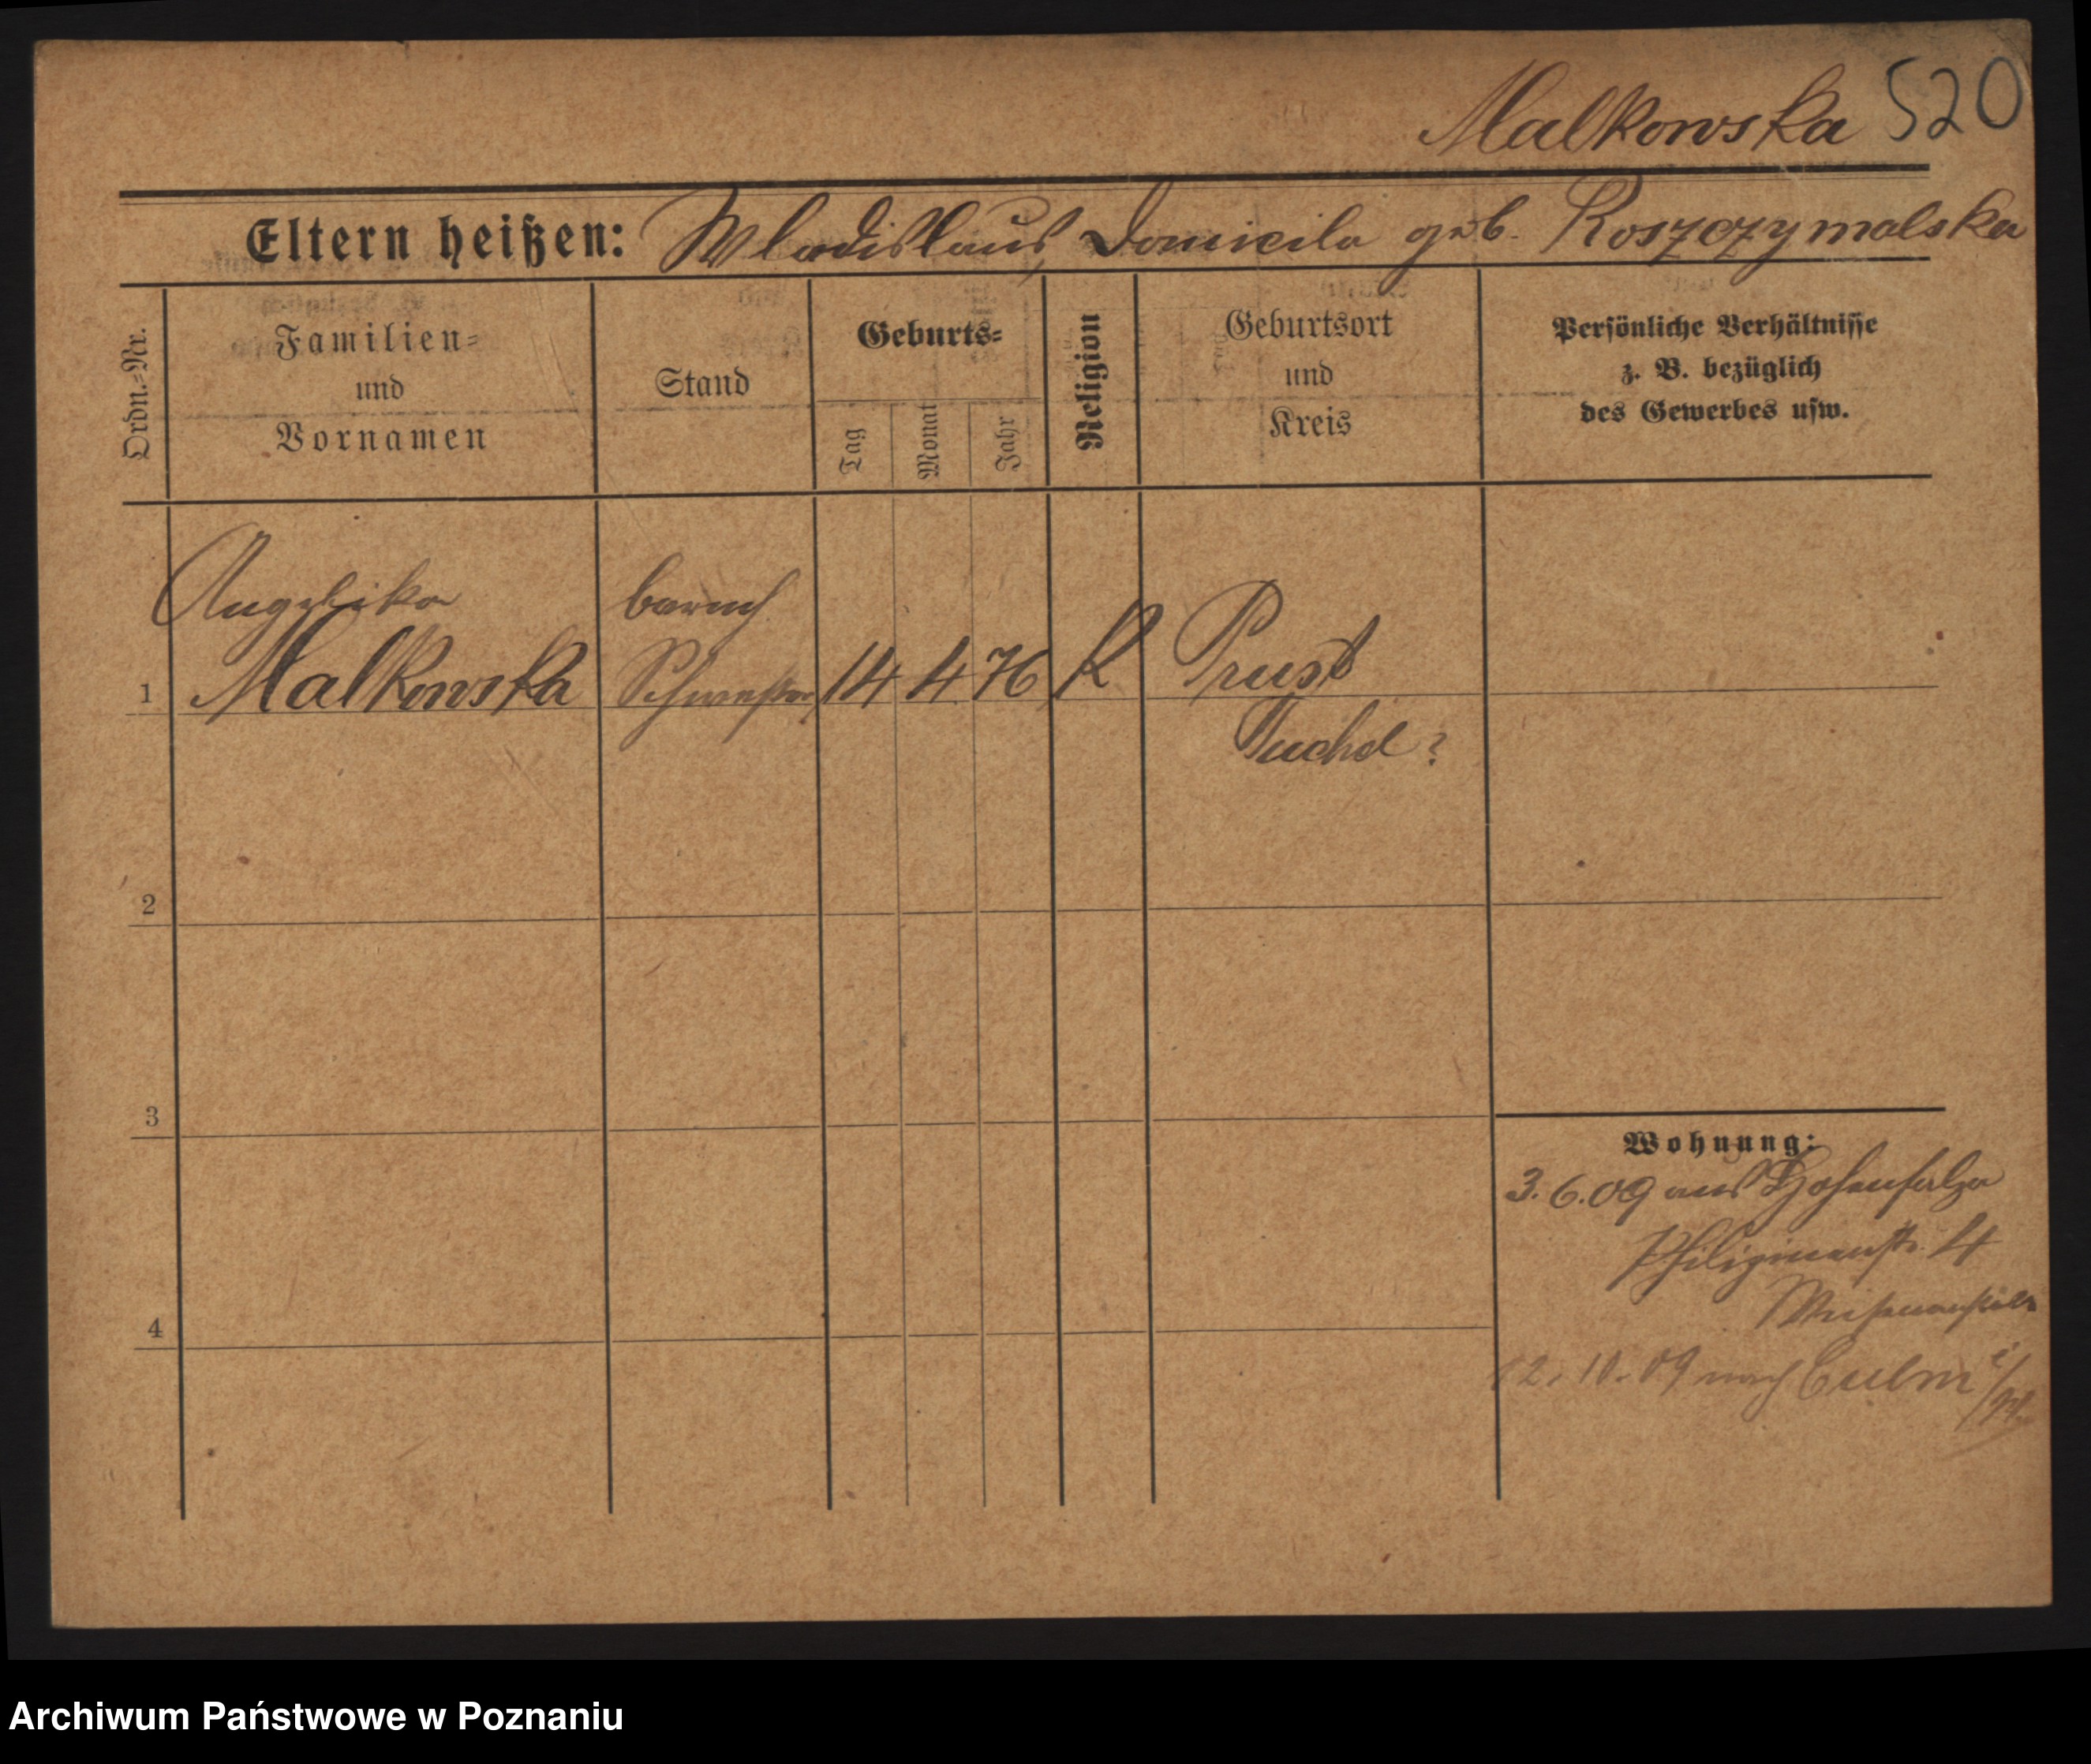 Malkowska 520
Eltern heißen: Wladislaus, Domicila geb. Roszczymalska
Ordn.=Nr.
Familien=
und
Vornamen
Stand
Geburts=
Tag
Monat
Jahr
Religion
Geburtsort
und
Kreis
Persönliche Verhältnisse
z. B. bezüglich
des Gewerbes usw.
Angelika barmh.
1 Malkowska Schwester 14 4 76 K Prust
Tuchel?
2
3
4
Wohnung:
3.6.09 aus Hohensalza
4
12.10.09 nach Culm
Archiwum Państwowe w Poznaniu